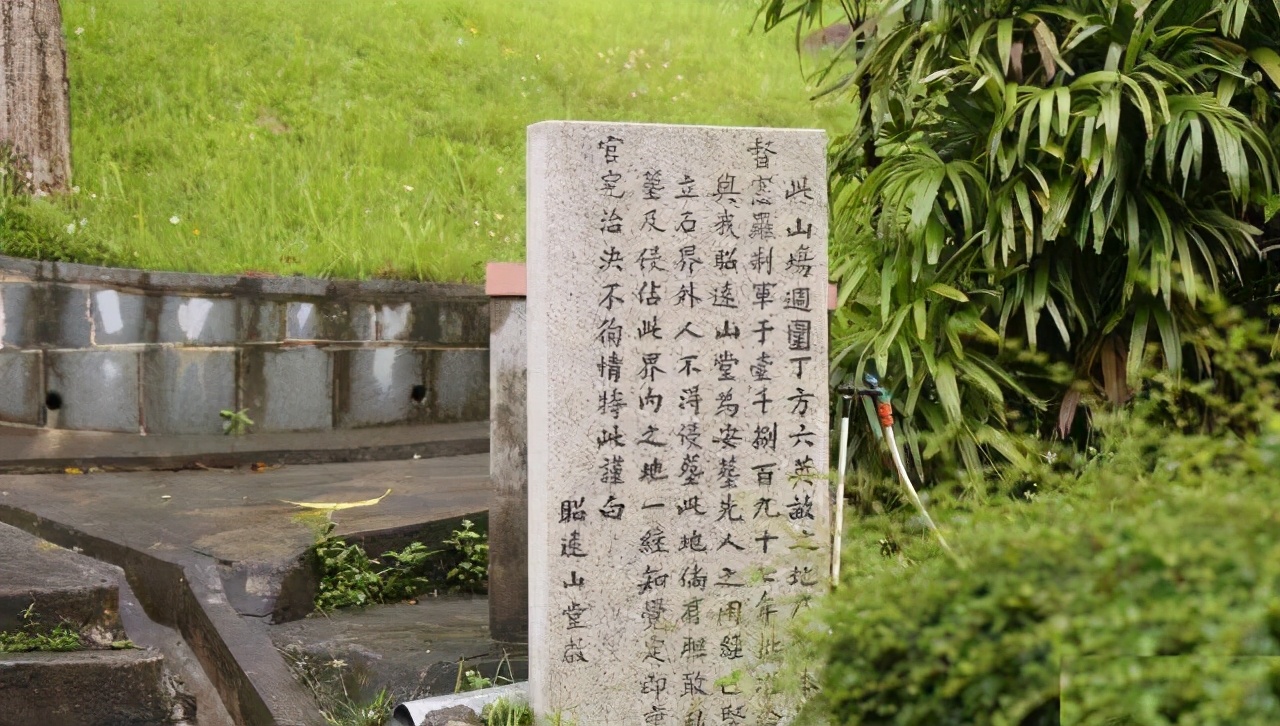 此山塲週圍丁方六英畝之地
督憲羅制軍于壹千捌百九十七年此
與我昭遠山堂為安塟先人之用經已竪
立石界外人不得侵塟此地倘有胆敢私
塟及侵佔此界內之地一經知覺定即稟
官究治決不徇情特此謹白
昭遠山堂啟